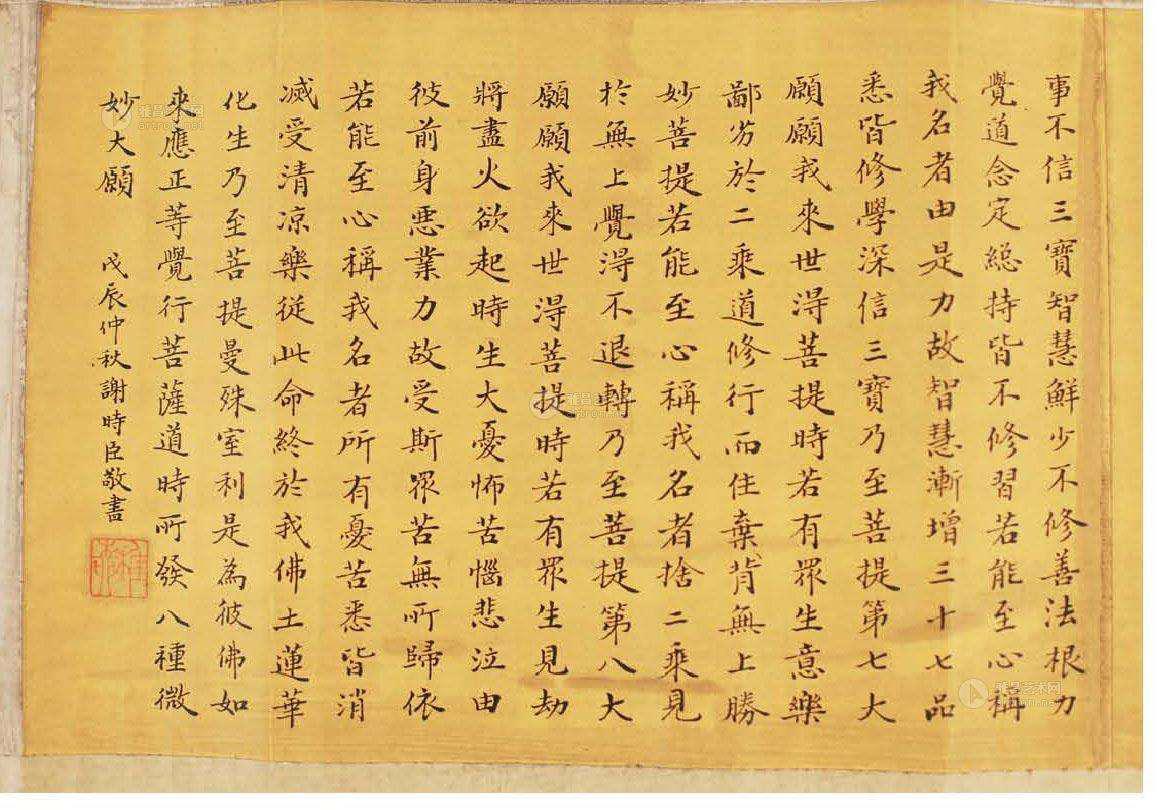 事不信三寶智慧鮮少不修善法根力
覺道念定総持皆不修習若能至心稱
我名者由是力故智慧漸增三十七品
悉皆修學深信三寶乃至菩提第七大
願願我來世得菩提時若有眾生意樂
鄙劣於二乘道修行而住棄背無上勝
妙菩提若能至心稱我名者捨二乘見
於無上覺得不退轉乃至菩提第八大
願願我來世得菩提時若有眾生見劫
將盡火欲起時生大憂怖苦惱悲泣由
彼前身惡業力故受斯眾苦無所歸依
若能至心稱我名者所有憂苦悉皆消
滅受清凉樂從此命終於我佛土蓮華
化生乃至菩提曼殊室利是為彼佛如
來應正等覺行菩薩道時所發八種微
妙大願
戊辰仲秋謝時臣敬書
雅昌艺术网